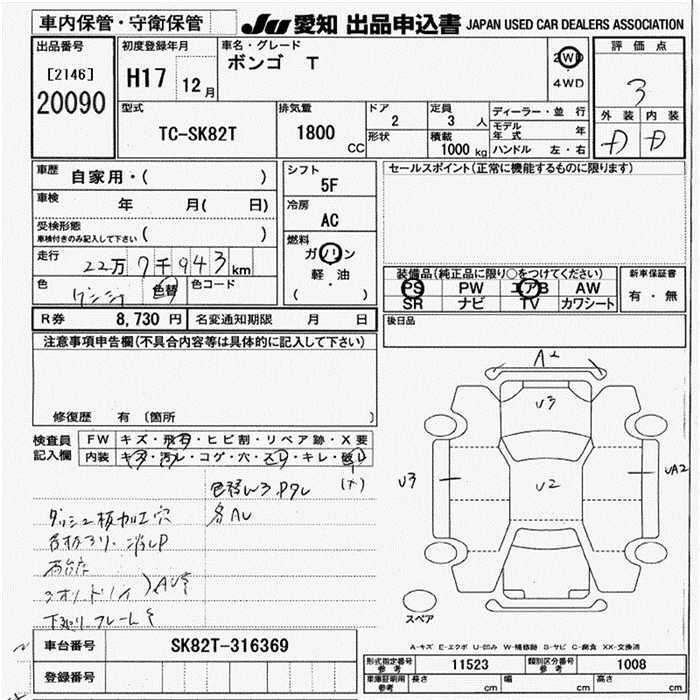 車内保管・守衛保管
JU 愛知 出品申込書 JAPAN USED CAR DEALERS ASSOCIATION
出品番号
[2146]
20090
初度登録年月
H17 12月
車名・グレード
ボンゴ T
2WD
4WD
評価点
3
外装 内装
D D
型式
TC-SK82T
排気量
1800 CC
ドア
2
形状
定員
3 人
積載
1000 kg
ディーラー・並行
モデル年式 年
ハンドル 左・右
車歴 自家用・( )
車検 年 月( 日)
受検形態
車検付きのみ記入して下さい ( )
走行 22万7千943km
色 色替 色コード
シフト
5F
冷房
AC
燃料
ガソリン
軽・油
( )
セールスポイント(正常に機能するものに限ります)
装備品(純正品に限り○をつけてください)
PS PW エアB AW
SR ナビ TV カワシート
新車保証書
有・無
R券 8,730 円 名変通知期限 月 日
後日品
注意事項申告欄(不具合内容等は具体的に記入して下さい)
修復歴 有 〔箇所 〕
検査員記入欄
FW キズ・飛石・ヒビ割・リペア跡・X要
内装 キズ・汚レ・コゲ・穴・スレ・キレ・破レ
(ナ)
色替W3 Pクレ
各AU
ダッシュ板加工穴
A2
U3
U3
U2
UA2
スペア
A-キズ E-エクボ U-凹み W-補修跡 S-サビ C-腐食 XX-交換済
車台番号 SK82T-316369
登録番号
形式指定番号 参考 11523 類別区分番号 参考 1008
車庫証明用 参考 長さ cm 幅 cm 高さ cm